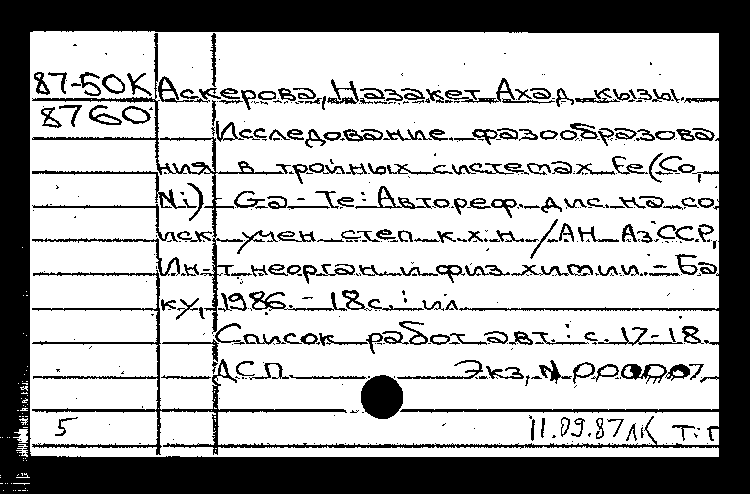 87-50К Аскерова, Назакет Ахад кызы.
8760
Исследование фазообразова
ния в тройных системах Fe(Co,
Ni) - Ga - Te: Автореф. дис. на со
иск. учен. степ. к.х.н. /АН АзССР,
Ин-т неорган. и физ. химии. - Ба
ку, 1986. - 18с. : ил.
Список работ авт.: с. 17-18.
ДСП. Экз, N 000007.
5 11.09.87 ЛК Т:Г